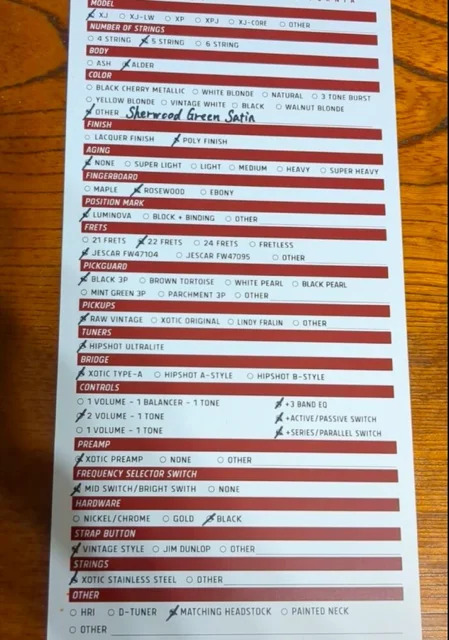 MODEL
XJ XJ-LW XP XPJ XJ-CORE OTHER
NUMBER OF STRINGS
4 STRING 5 STRING 6 STRING
BODY
ASH ALDER
COLOR
BLACK CHERRY METALLIC WHITE BLONDE NATURAL 3 TONE BURST
YELLOW BLONDE VINTAGE WHITE BLACK WALNUT BLONDE
OTHER Sherwood Green Satin
FINISH
LACQUER FINISH POLY FINISH
AGING
NONE SUPER LIGHT LIGHT MEDIUM HEAVY SUPER HEAVY
FINGERBOARD
MAPLE ROSEWOOD EBONY
POSITION MARK
LUMINOVA BLOCK + BINDING OTHER
FRETS
21 FRETS 22 FRETS 24 FRETS FRETLESS
JESCAR FW47104 JESCAR FW47095 OTHER
PICKGUARD
BLACK 3P BROWN TORTOISE WHITE PEARL BLACK PEARL
MINT GREEN 3P PARCHMENT 3P OTHER
PICKUPS
RAW VINTAGE XOTIC ORIGINAL LINDY FRALIN OTHER
TUNERS
HIPSHOT ULTRALITE
BRIDGE
XOTIC TYPE-A HIPSHOT A-STYLE HIPSHOT B-STYLE
CONTROLS
1 VOLUME - 1 BALANCER - 1 TONE +3 BAND EQ
2 VOLUME - 1 TONE +ACTIVE/PASSIVE SWITCH
1 VOLUME - 1 TONE +SERIES/PARALLEL SWITCH
PREAMP
XOTIC PREAMP NONE OTHER
FREQUENCY SELECTOR SWITCH
MID SWITCH/BRIGHT SWITH NONE
HARDWARE
NICKEL/CHROME GOLD BLACK
STRAP BUTTON
VINTAGE STYLE JIM DUNLOP OTHER
STRINGS
XOTIC STAINLESS STEEL OTHER
OTHER
HRI D-TUNER MATCHING HEADSTOCK PAINTED NECK
OTHER